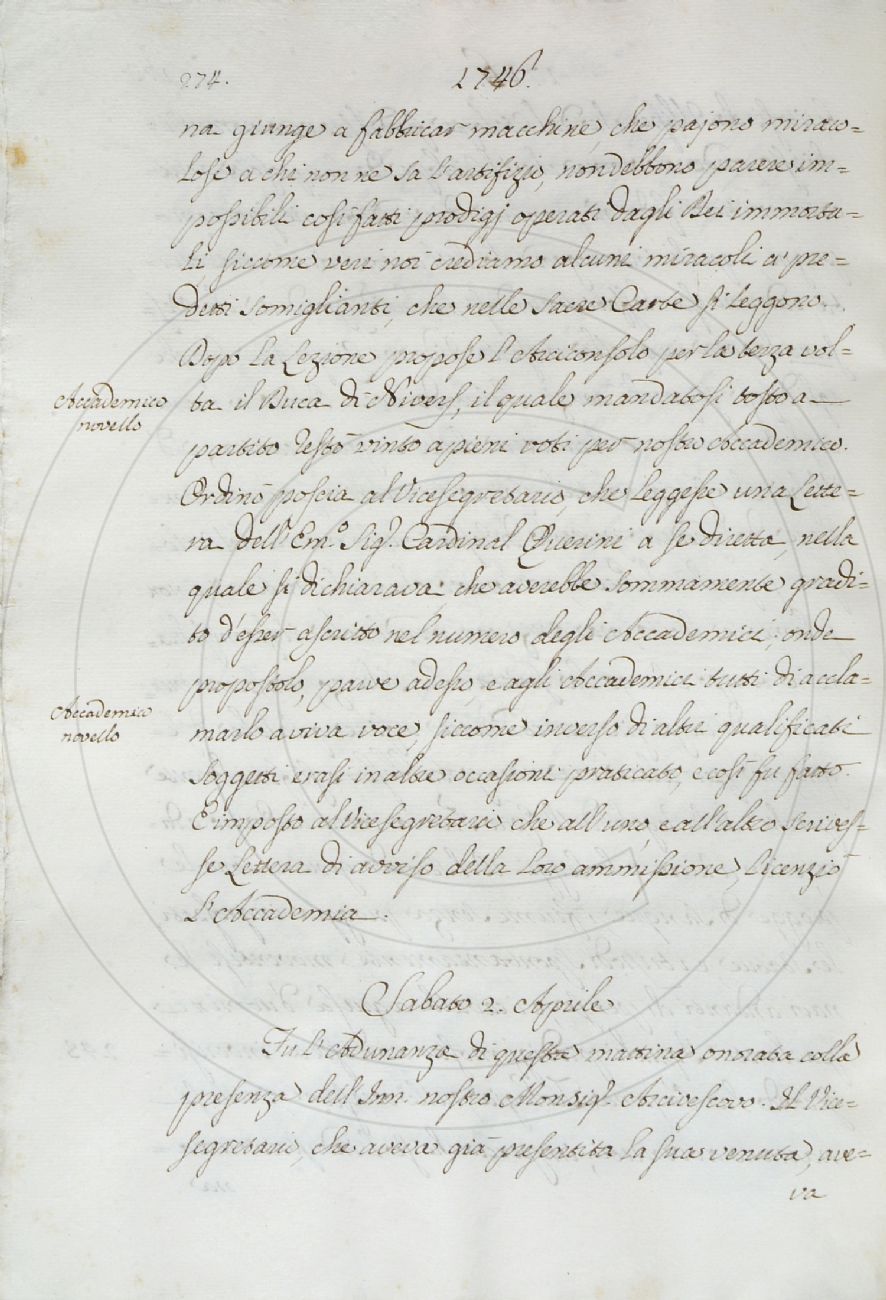 274.
1746.
na giunge a fabbricar macchine, che pajono miraco=
losi a chi non ne sa l'artifizio, non debbono parere im=
possibili così fatti prodigj operati dagli Dei immorta=
li, siccome veri noi crediamo alcuni miracoli a' pre=
detti somiglianti, che nelle Sacre Carte si leggono.
Dopo la Lezione propose l'Arciconsolo per la terza vol=
Accademico
novello
ta il Duca di Nivers, il quale mandatosi tosto a
partito restò vinto a pieni voti per nostro Accademico.
Ordinò poscia al Vicesegretario, che leggesse una Lette=
ra dell'Em.o Sig.r Cardinal Querini a se diretta, nella
quale si dichiarava, che averebbe sommamente gradi=
to d'esser ascritto nel numero degli Accademici; onde
propostolo, parve ad esso, e agli Accademici tutti di accla=
Accademico
novello
marlo a viva voce, siccome inverso di altri qualificati
soggetti erasi in altre occasioni praticato, e così fu fatto.
E imposto al Vicesegretario che all'uno, e all'altro scrives=
se Lettera di avviso della loro ammissione, licenziò
l'Accademia.
Sabato 2. Aprile
Fu l'Adunanza di questa mattina onorata colla
presenza dell'Inn. nostro Monsig.r Arcivescovo. Il Vice=
segretario, che aveva già presentita la sua venuta, ave=
va